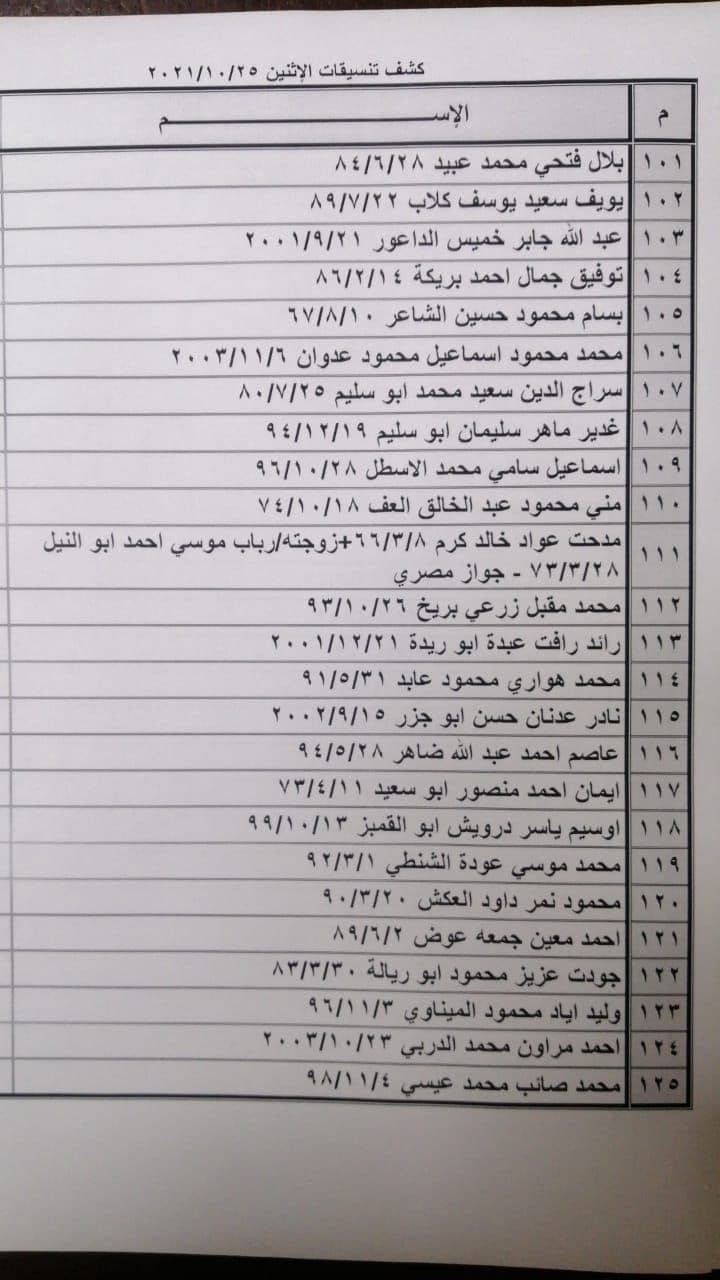 كشف تنسيقات الإثنين ٢٠٢١/١٠/٢٥
م الإســـــــــــــم
١٠١ بلال فتحي محمد عبيد ٨٤/٦/٢٨
١٠٢ يويف سعيد يوسف كلاب ٨٩/٧/٢٢
١٠٣ عبد الله جابر خميس الداعور ٢٠٠١/٩/٢١
١٠٤ توفيق جمال احمد بريكة ٨٦/٢/١٤
١٠٥ بسام محمود حسين الشاعر ٦٧/٨/١٠
١٠٦ محمد محمود اسماعيل محمود عدوان ٢٠٠٣/١١/٦
١٠٧ سراج الدين سعيد محمد ابو سليم ٨٠/٧/٢٥
١٠٨ غدير ماهر سليمان ابو سليم ٩٤/١٢/١٩
١٠٩ اسماعيل سامي محمد الاسطل ٩٦/١٠/٢٨
١١٠ مني محمود عبد الخالق العف ٧٤/١٠/١٨
١١١ مدحت عواد خالد كرم ٦٦/٣/٨+زوجته/رباب موسي احمد ابو النيل
٧٣/٣/٢٨ - جواز مصري
١١٢ محمد مقبل زرعي بريخ ٩٣/١٠/٢٦
١١٣ رائد رافت عبدة ابو ريدة ٢٠٠١/١٢/٢١
١١٤ محمد هواري محمود عابد ٩١/٥/٣١
١١٥ نادر عدنان حسن ابو جزر ٢٠٠٢/٩/١٥
١١٦ عاصم احمد عبد الله ضاهر ٩٤/٥/٢٨
١١٧ ايمان احمد منصور ابو سعيد ٧٣/٤/١١
١١٨ اوسيم ياسر درويش ابو القمبز ٩٩/١٠/١٣
١١٩ محمد موسي عودة الشنطي ٩٢/٣/١
١٢٠ محمود نمر داود العكش ٩٠/٣/٢٠
١٢١ احمد معين جمعه عوض ٨٩/٦/٢
١٢٢ جودت عزيز محمود ابو ريالة ٨٣/٣/٣٠
١٢٣ وليد اياد محمود الميناوي ٩٦/١١/٣
١٢٤ احمد مراون محمد الدربي ٢٠٠٣/١٠/٢٣
١٢٥ محمد صائب محمد عيسي ٩٨/١١/٤